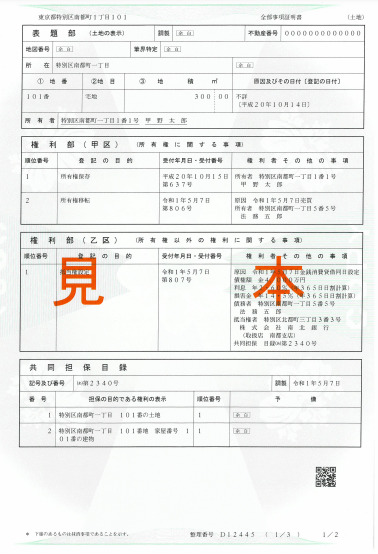 東京都特別区南都町1丁目101 全部事項証明書 (土地)
表題部 (土地の表示) 調製 余白 不動産番号 0000000000000
地図番号 余白 筆界特定 余白
所在 特別区南都町一丁目 余白
① 地番 ②地目 ③ 地積 ㎡ 原因及びその日付〔登記の日付〕
101番 宅地 300 00 不詳
〔平成20年10月14日〕
所有者 特別区南都町一丁目1番1号 甲野太郎
権利部(甲区) (所有権に関する事項)
順位番号 登記の目的 受付年月日・受付番号 権利者その他の事項
1 所有権保存 平成20年10月15日 所有者 特別区南都町一丁目1番1号
第637号 甲野太郎
2 所有権移転 令和1年5月7日 原因 令和1年5月7日売買
第806号 所有者 特別区南都町一丁目5番5号
法務五郎
権利部(乙区) (所有権以外の権利に関する事項)
順位番号 登記の目的 受付年月日・受付番号 権利者その他の事項
1 令和1年5月7日 原因 令和1年5月7日金銭消費貸借同日設定
第807号 債権額 金4, 万円
利息 年2 (年365日日割計算)
損害金 年14・5%(年365日日割計算)
債務者 特別区南都町一丁目5番5号
法務五郎
抵当権者 特別区北都町三丁目3番3号
株式会社南北銀行
(取扱店 南都支店)
共同担保 目録㈲第2340号
見本
共同担保目録
記号及び番号 ㈲第2340号 調製 令和1年5月7日
番号 担保の目的である権利の表示 順位番号 予備
1 特別区南都町一丁目 101番の土地 1 余白
2 特別区南都町一丁目 101番地 家屋番号 1 1 余白
01番の建物
* 下線のあるものは抹消事項であることを示す。 整理番号 D12445 (1/3) 1/2